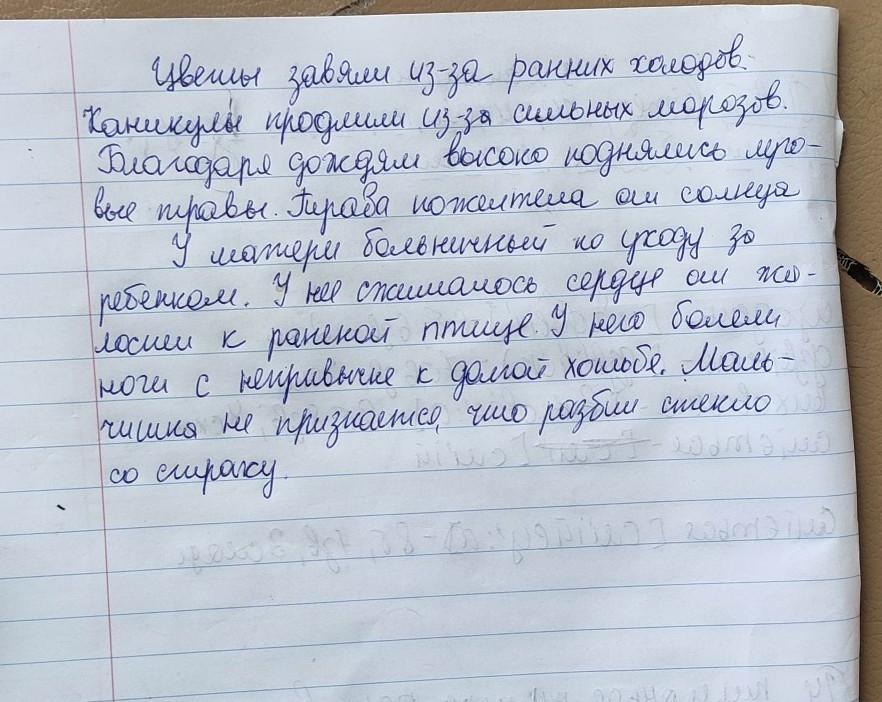 Цветы завяли из-за ранних холодов.
Каникулы продлили из-за сильных морозов.
Благодаря дождям высоко поднялись луго-
вые травы. Трава пожелтела от солнца
У матери больничный по уходу за
ребенком. У нее сжималось сердце от жа-
лости к раненой птице. У него болели
ноги с непривычке к долгой хотьбе. Маль-
чишка не признается, что разбил стекло
со страху.